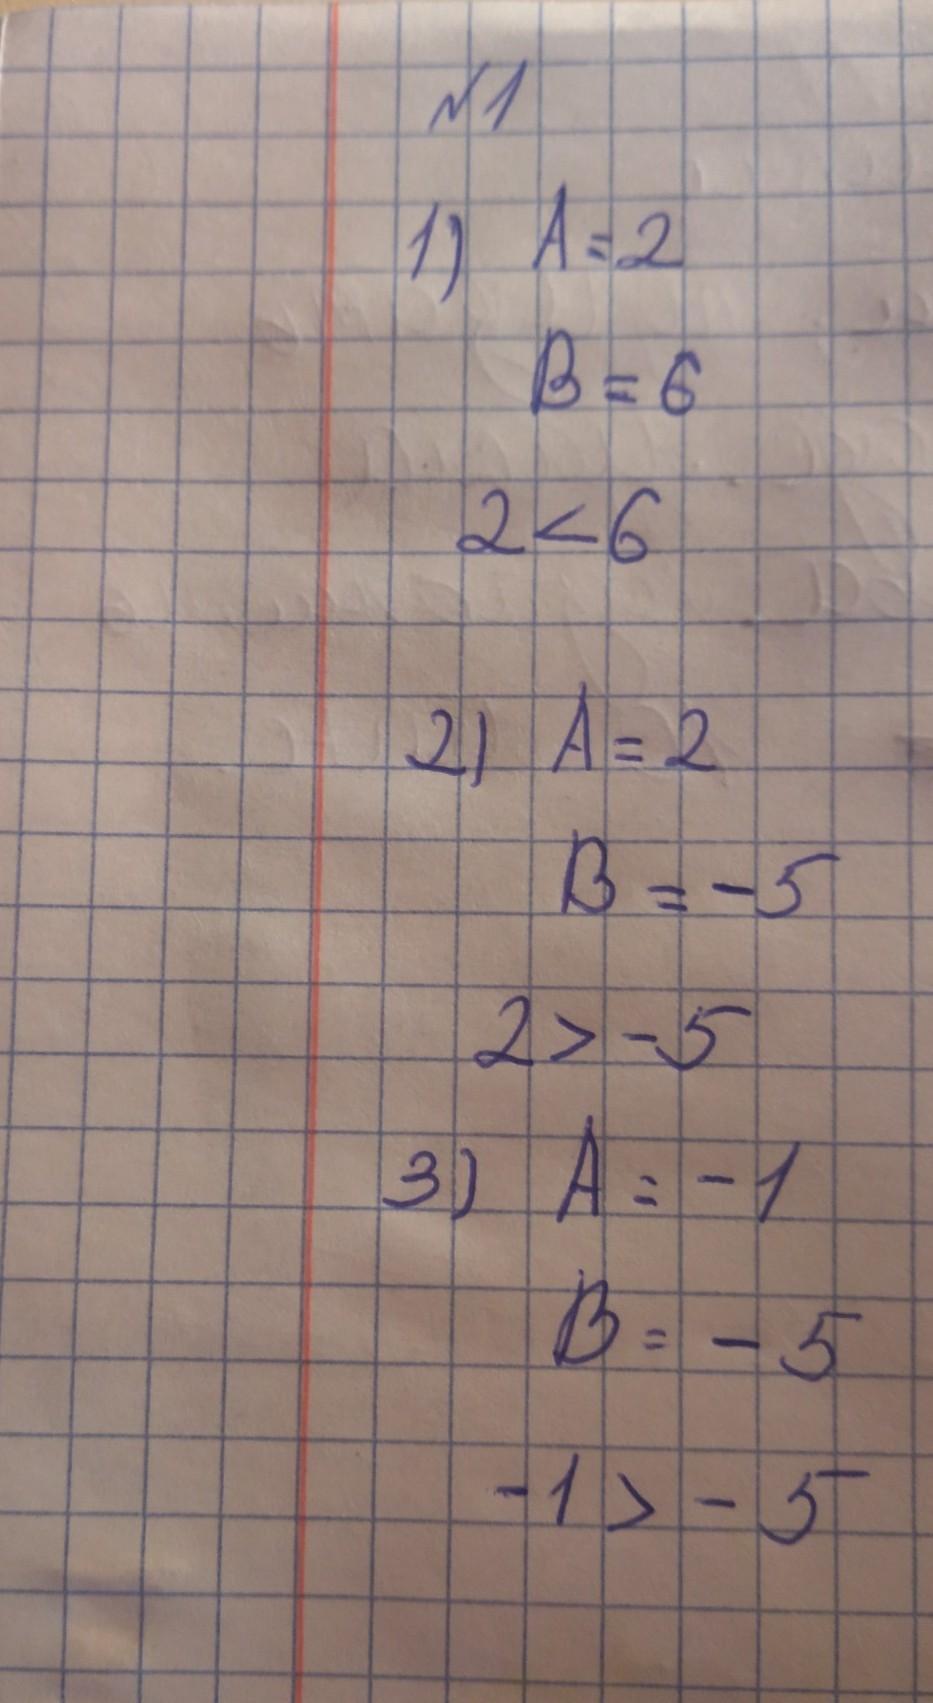 №1
1) A=2
B=6
2<6
2) A=2
B=-5
2>-5
3) A=-1
B=-5
-1>-5